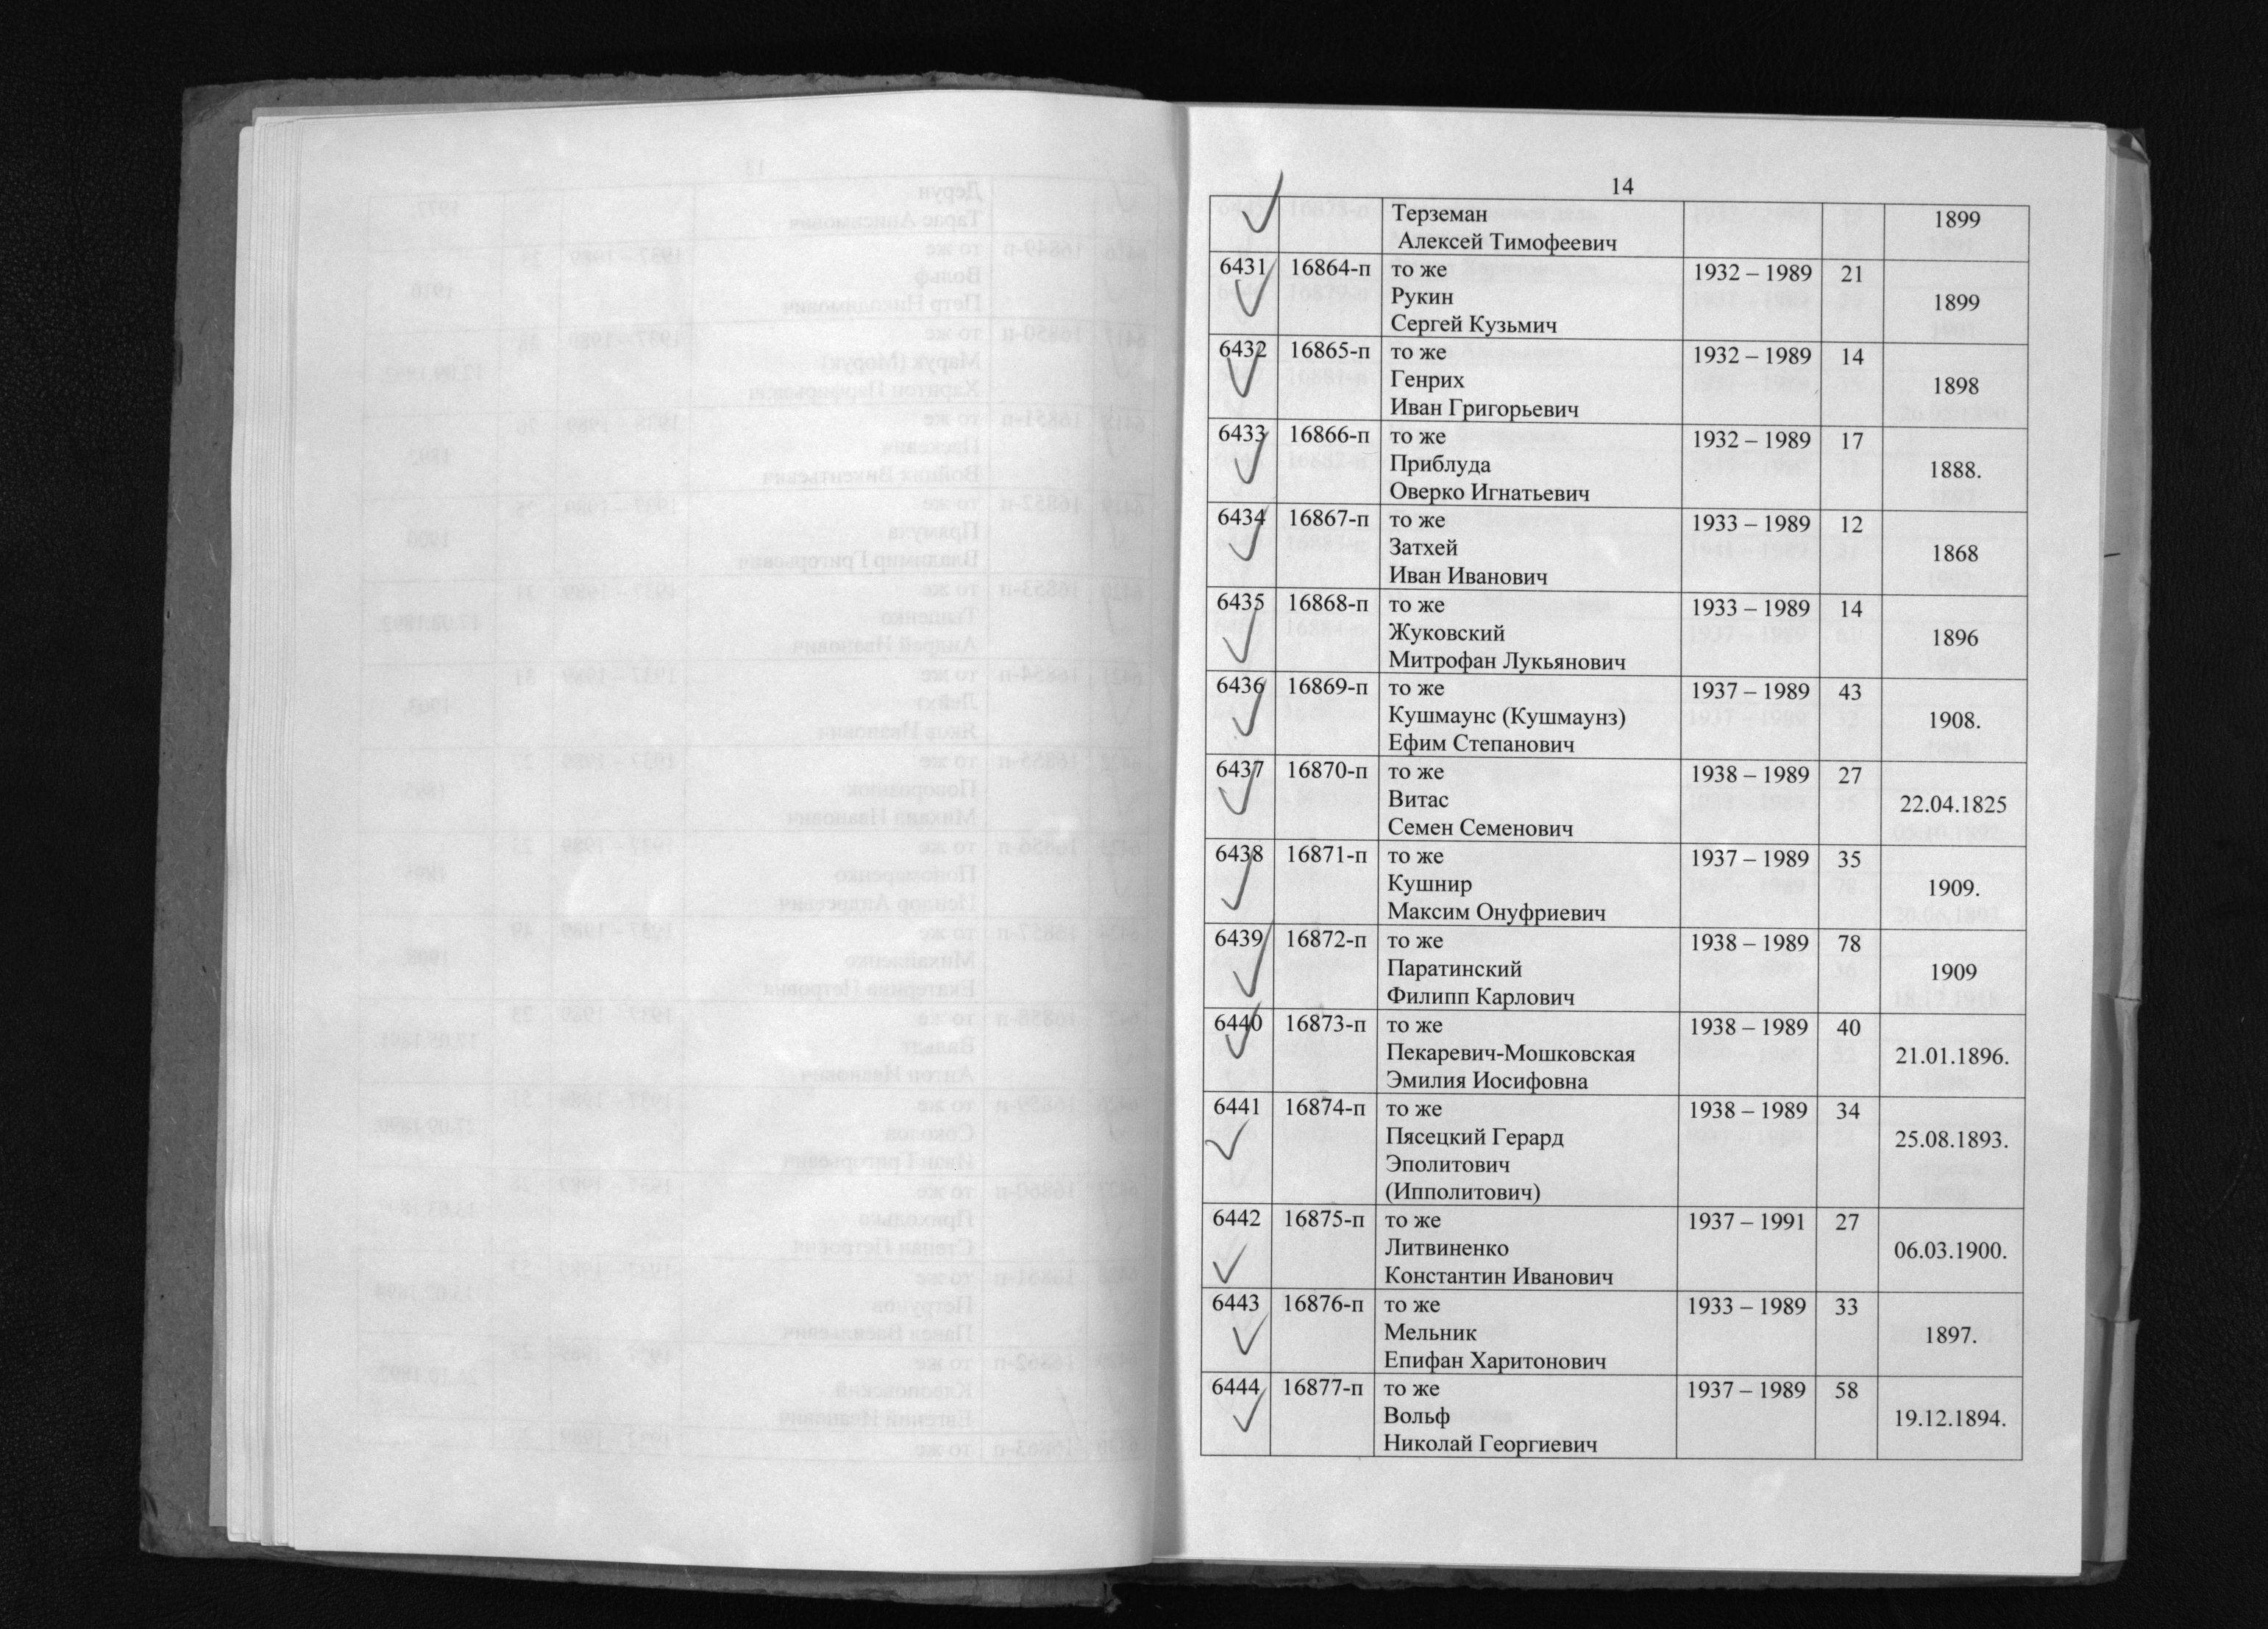 14
Терземан 1899
Алексей Тимофеевич
6431 16864-п то же 1932 – 1989 21
Рукин 1899
Сергей Кузьмич
6432 16865-п то же 1932 – 1989 14
Генрих 1898
Иван Григорьевич
6433 16866-п то же 1932 – 1989 17
Приблуда 1888.
Оверко Игнатьевич
6434 16867-п то же 1933 – 1989 12
Затхей 1868
Иван Иванович
6435 16868-п то же 1933 – 1989 14
Жуковский 1896
Митрофан Лукьянович
6436 16869-п то же 1937 – 1989 43
Кушмаунс (Кушмаунз) 1908.
Ефим Степанович
6437 16870-п то же 1938 – 1989 27
Витас 22.04.1825
Семен Семенович
6438 16871-п то же 1937 – 1989 35
Кушнир 1909.
Максим Онуфриевич
6439 16872-п то же 1938 – 1989 78
Паратинский 1909
Филипп Карлович
6440 16873-п то же 1938 – 1989 40
Пекаревич-Мошковская 21.01.1896.
Эмилия Иосифовна
6441 16874-п то же 1938 – 1989 34
Пясецкий Герард 25.08.1893.
Эполитович
(Ипполитович)
6442 16875-п то же 1937 – 1991 27
Литвиненко 06.03.1900.
Константин Иванович
6443 16876-п то же 1933 – 1989 33
Мельник 1897.
Епифан Харитонович
6444 16877-п то же 1937 – 1989 58
Вольф 19.12.1894.
Николай Георгиевич